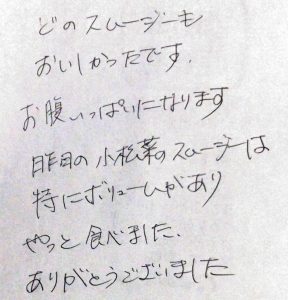 どのスムージーも
おいしかったです.
お腹いっぱいになります
昨日の小松菜のスムージーは
特にボリュームがあり
やっと食べました.
ありがとうございました